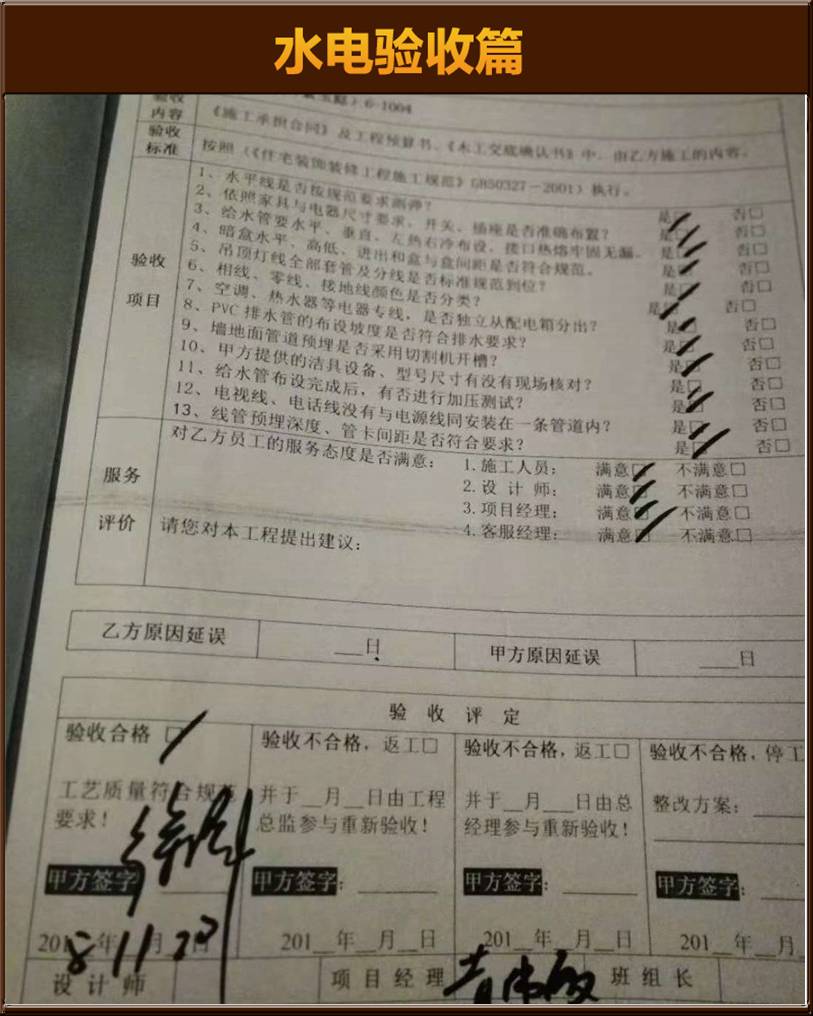 水电验收篇
验收
内容
)6-1004
《施工承担合同》及工程预算书、《水工交底确认书》中,由乙方施工的内容。
验收
标准
按照(《住宅装饰装修工程施工规范》GB50327-2001)执行。
验收
项目
1、水平线是否按规范要求测弹? 是□ 否□
2、依照家具与电器尺寸要求,开关、插座是否准确布置? 是□ 否□
3、给水管要水平、垂直、左热右冷布设,接口热熔牢固无漏。 是□ 否□
4、暗盒水平、高低、进出和盒与盒间距是否符合规范。 是□ 否□
5、吊顶灯线全部套管及分线是否标准规范到位? 是□ 否□
6、相线、零线、接地线颜色是否分类? 是□ 否□
7、空调、热水器等电器专线,是否独立从配电箱分出? 是□ 否□
8、PVC排水管的布设坡度是否符合排水要求? 是□ 否□
9、墙地面管道预埋是否采用切割机开槽? 是□ 否□
10、甲方提供的洁具设备、型号尺寸有没有现场核对? 是□ 否□
11、给水管布设完成后,有否进行加压测试? 是□ 否□
12、电视线、电话线没有与电源线同安装在一条管道内? 是□ 否□
13、线管预埋深度、管卡间距是否符合要求? 是□ 否□
服务
评价
对乙方员工的服务态度是否满意: 1.施工人员: 满意□ 不满意□
2.设 计 师: 满意□ 不满意□
3.项目经理: 满意□ 不满意□
4.客服经理: 满意□ 不满意□
请您对本工程提出建议:
乙方原因延误 __日 甲方原因延误 ___日
验 收 评 定
验收合格 □ 验收不合格,返工□ 验收不合格,返工□ 验收不合格,停工
工艺质量符合规范 并于__月__日由工程 并于__月___日由总 整改方案:
要求! 总监参与重新验收! 经理参与重新验收!
甲方签字 甲方签字: 甲方签字: 甲方签字:
2018年11月23日 201__年__月__日 201__年__月__日 201__年__月
设计师 项目经理 班组长